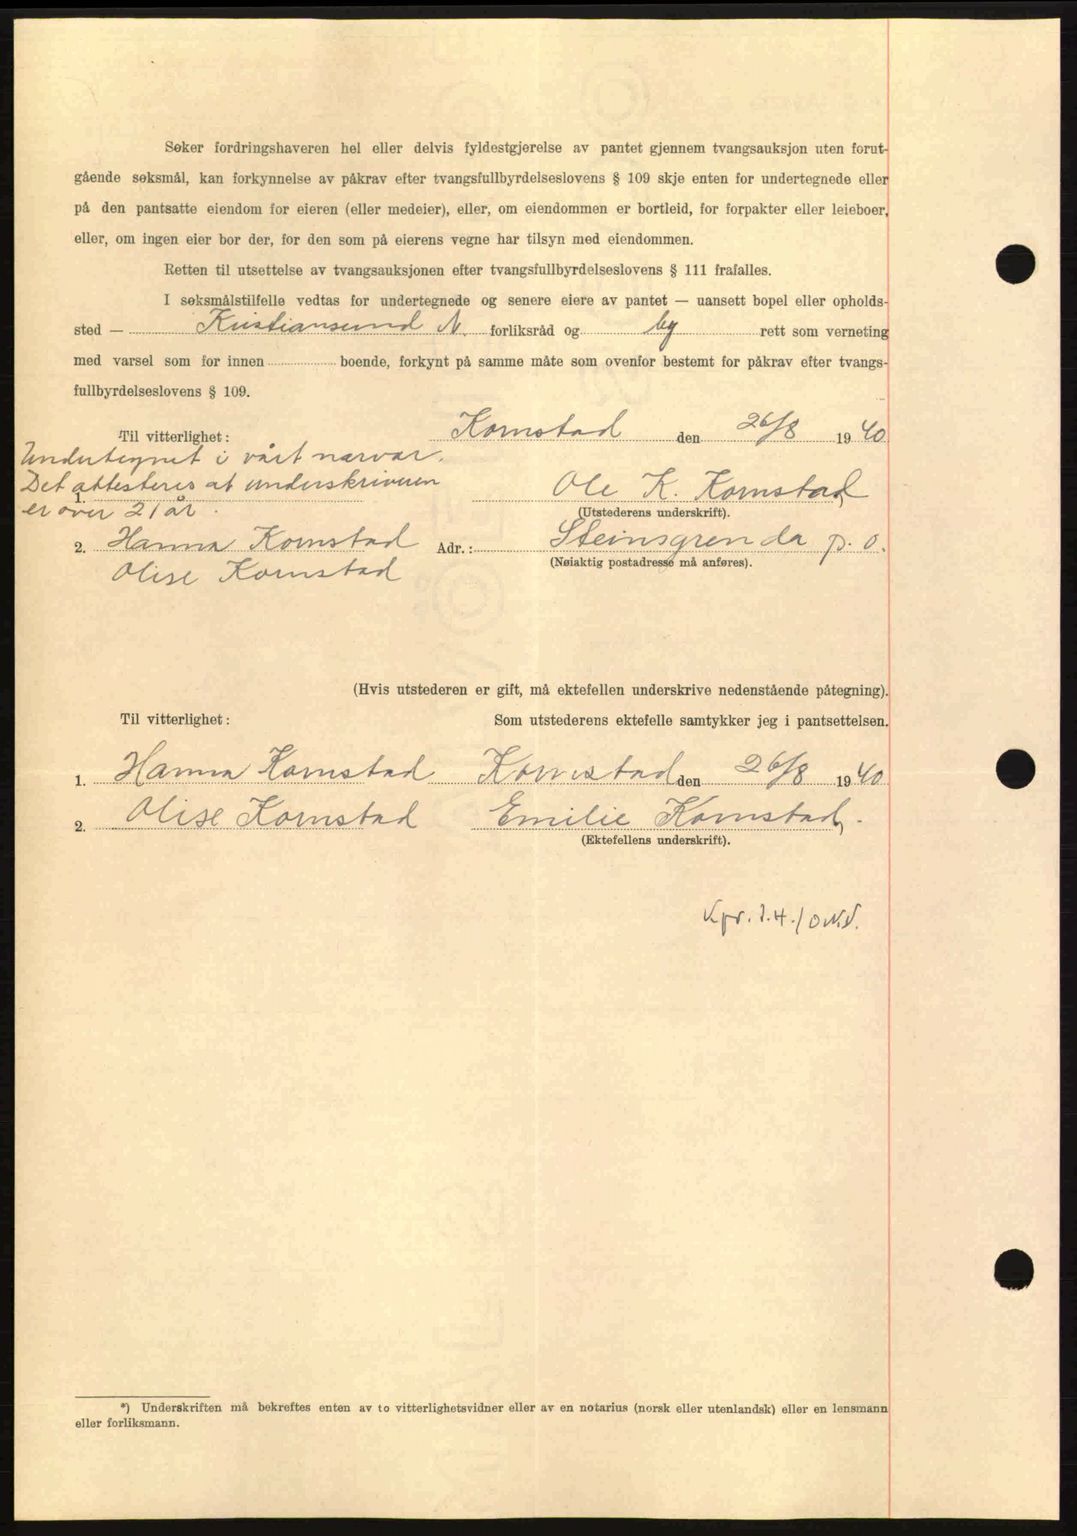 Søker fordringshaveren hel eller delvis fyldestgjørelse av pantet gjennem tvangsauksjon uten forut-
gående søksmål, kan forkynnelse av påkrav efter tvangsfullbyrdelseslovens § 109 skje enten for undertegnede eller
på den pantsatte eiendom for eieren (eller medeier), eller, om eiendommen er bortleid, for forpakter eller leieboer,
eller, om ingen eier bor der, for den som på eierens vegne har tilsyn med eiendommen.
Retten til utsettelse av tvangsauksjonen efter tvangsfullbyrdelseslovens § 111 frafalles.
I søksmålstilfelle vedtas for undertegnede og senere eiere av pantet — uansett bopel eller opholds-
sted — Kristiansund N. forliksråd og by rett som verneting
med varsel som for innen boende, forkynt på samme måte som ovenfor bestemt for påkrav efter tvangs-
fullbyrdelseslovens § 109.
Til vitterlighet: Kornstad den 26/8 1940
Undertegnet i vårt nærvær.
Det attesteres at underskriveren
1. Ole K. Kornstad
er over 21 år.
(Utstederens underskrift).
2. Hanna Kornstad Adr.: Steinsgrenda p. o.
Olise Kornstad (Nøiaktig postadresse må anføres).
(Hvis utstederen er gift, må ektefellen underskrive nedenstående påtegning).
Til vitterlighet: Som utstederens ektefelle samtykker jeg i pantsettelsen.
1. Hanna Kornstad Kornstad den 26/8 1940
2. Olise Kornstad Emilie Kornstad.
(Ektefellens underskrift).
*) Underskriften må bekreftes enten av to vitterlighetsvidner eller av en notarius (norsk eller utenlandsk) eller en lensmann
eller forliksmann.